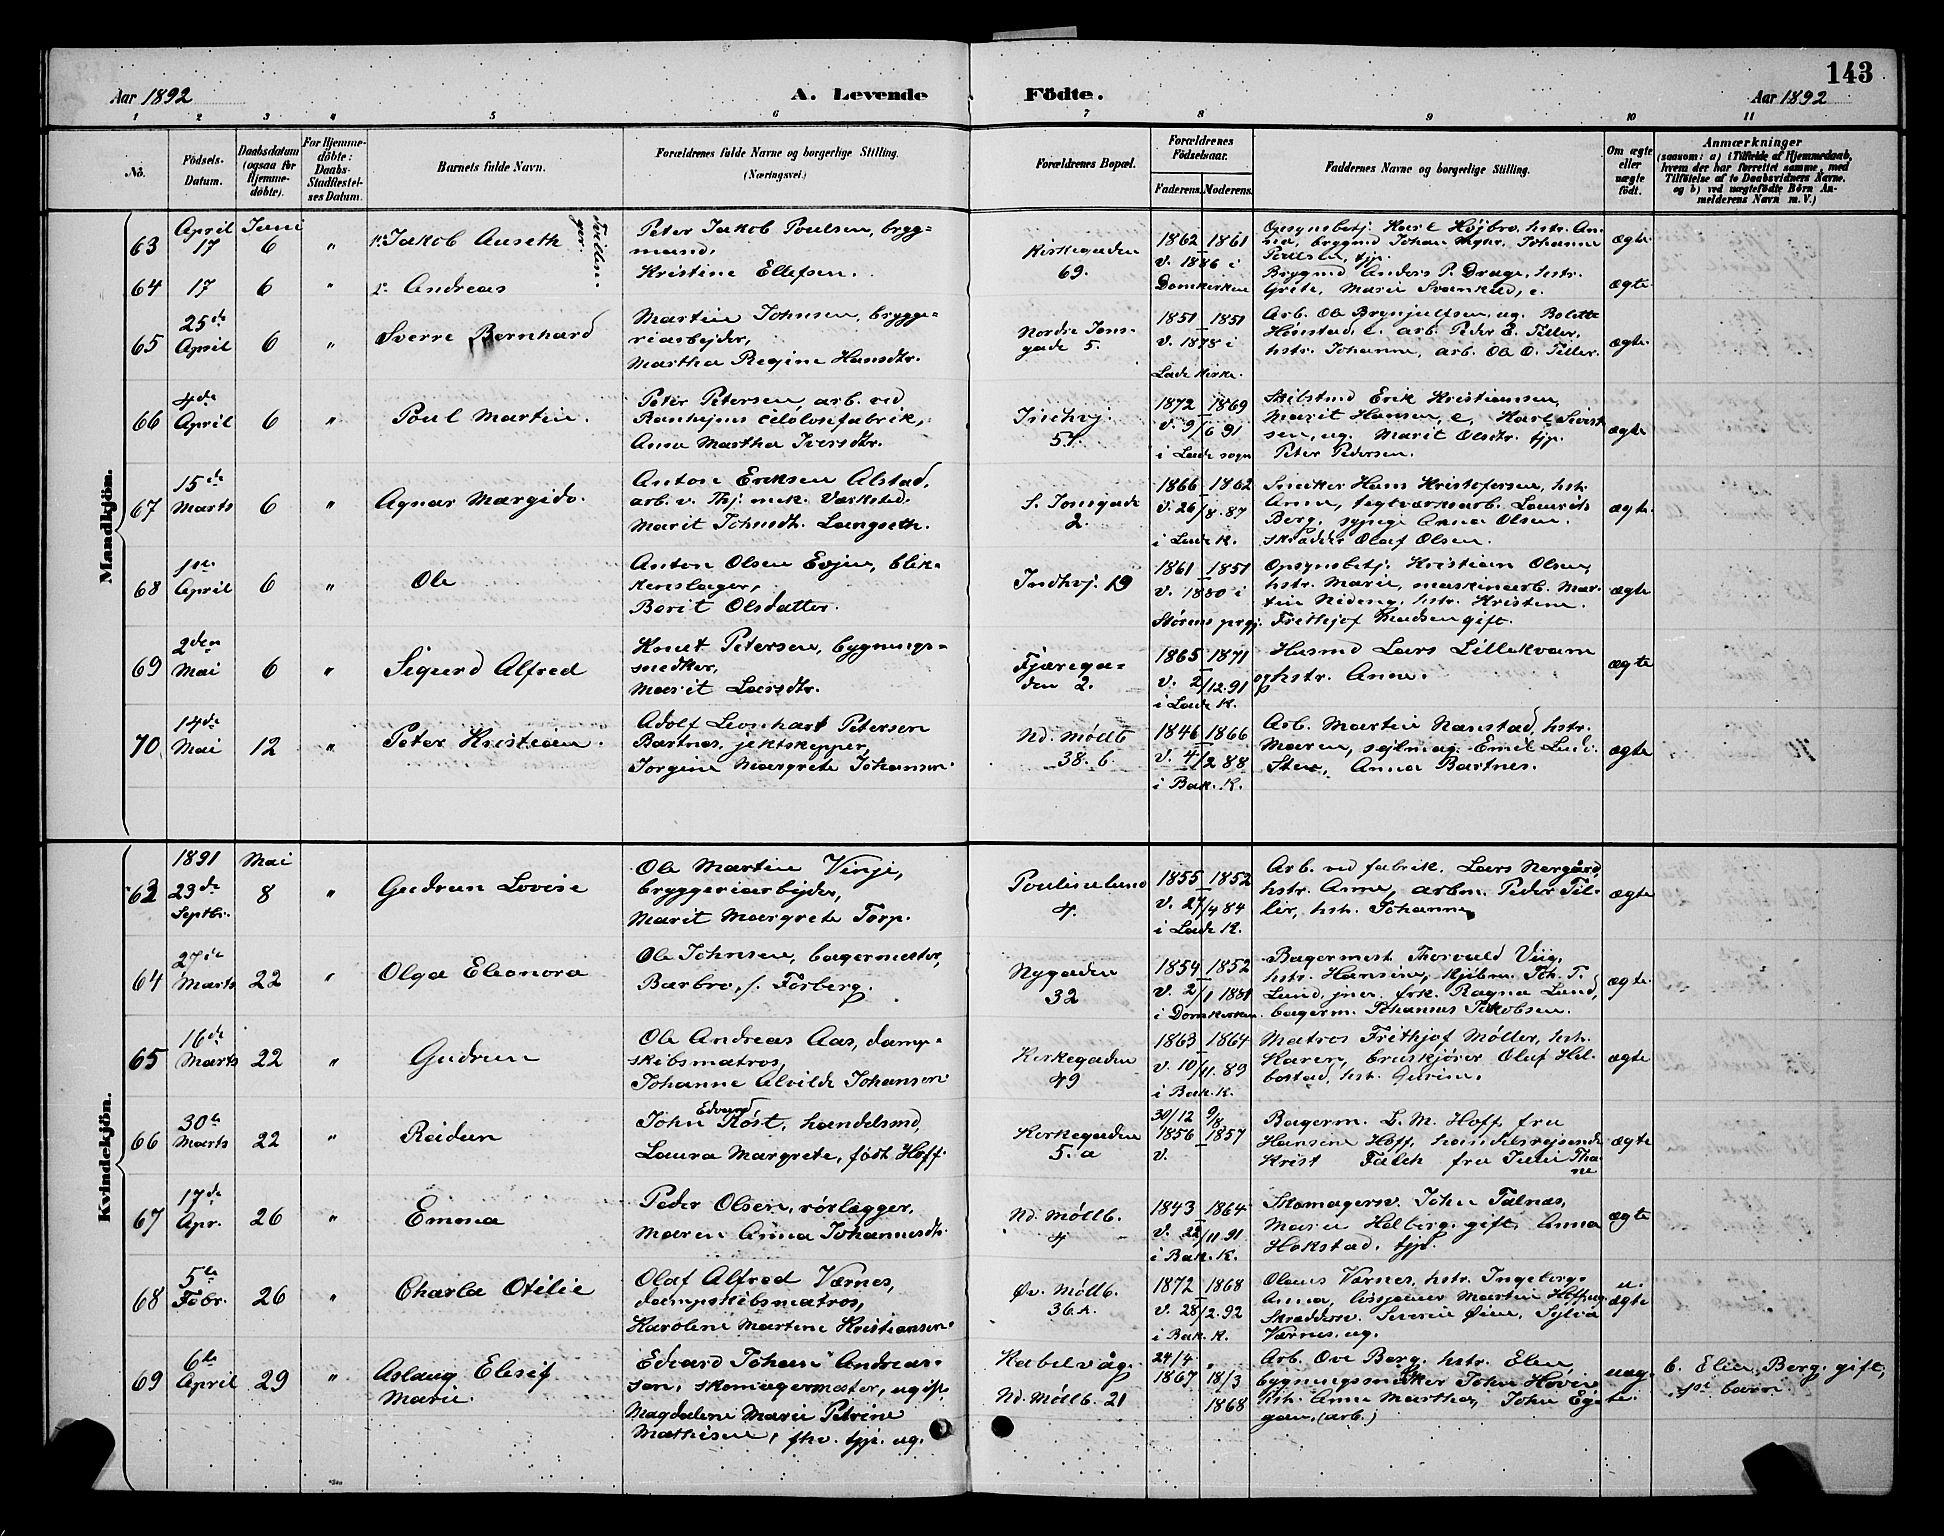 143
Aar 1892 A. Levende Födte. Aar 1892
1 2 3 4 5 6 7 8 9 10 11
No.
Födsels-
Datum.
Daabsdatum
(ogsaa for
Hjemme-
döbte).
For Hjemme-
döbte:
Daabs-
Stadfæstel-
ses Datum.
Barnets fulde Navn.
Forældrenes fulde Navne og borgerlige Stilling.
(Næringsvei.)
Forældrenes Bopæl.
Forældrenes
Födselsaar.
Faderens. Moderens.
Faddernes Navne og borgerlige Stilling.
Om ægte
eller
uægte
födt.
Anmærkninger
(saasom: a) i Tilfælde af Hjemmedaab,
hvem der har forrettet samme, med
Tilföielse af to Daabsvidners Navne,
og b) ved uægtefödte Börn An-
melderens Navn m. V.)
Mandkjön.
63
April
17
Juni
6
"
1. Jakob Auseth
Tvillin-
ger.
Peter Jakob Poulsen, bryg-
mand,
Kristine Ellefsen.
Kirkegaden
69.
1862 - 1861
v. 1886 i
Domkirken
Opsynsbetj. Karl Højbro, hstr. An-
na, brygmd Johan Johanne
Poulsen, tjp.
ægte
64
17
6
"
2. Andreas
Brygmd Anders P. Drage, hstr.
Grete, Marie e.
ægte
65
25de
April
6
"
Sverre Bernhard
Martin Johnsen, brygge-
riarbejder,
Martha Regine Hansdtr.
Nordre Jons-
gade 5.
1851 - 1851
v. 1878 i
Lade Kirke.
Arb. Ole Brynjulfsen, ug. Bolette
Hønstad, e. arb. Peder E. Tiller,
hstr. Johanne, arb. Ole O. Tiller.
ægte
66
4de
April
6
"
Poul Martin.
Peter Petersen, arb. ved
Ranhejens cilölosefabrik,
Anna Martha Iversdtr.
Indhvj.
51.
1872 - 1869
v. 9/6 91
i Lade sogn
Skilstmd Erik Kristiansen,
Marit Hansen, e, Karl Sivert-
sen, ug. Marit Olsdtr. tjp.
Peter Pedersen.
ægte
67
15de
Marts
6
"
Agnar Margido.
Anton Eriksen Alstad,
arb. v. Thj. mek. Værksted.
Marit Johnsdt. Langseth.
S. Jonsgade
2.
1866 - 1862
v. 26/8. 87
i Lade K.
Snedker Hans Kristofersen, hst.
Anne, teglværksarb. Laurits
Berg, sypige Anna Olsen.
skrædder Olaf Olsen.
ægte
68
1ste
April
6
"
Ole
Anton Olsen Evjen, blik-
kenslager,
Berit Olsdatter.
Indhvj. 19
1861 - 1851
v. 1880 i
Størens prgj.
Opsynsbetj. Kristian Olsen,
hstr. Marie, maskinarb. Mar-
tin Nideng, hstr. Kristine.
Frithjof Madsen gift.
ægte
69
2den
Mai
6
"
Sigurd Alfred
Knut Petersen, bygnings-
snedker,
Marit Larsdtr.
Fjærega-
den 2.
1865 - 1871
v. 2/12. 91
i Lade K.
Husmd Lars Lillekvam
og hstr. Anne.
ægte
70
14de
Mai
12
"
Peter Kristian
Adolf Leonhart Petersen
Bartnes, jektskipper,
Jorgine Margrete Johansen
Nd. Møllb
38. b.
1846 - 1866
v. 4/2 88
i Bak. K.
Arb. Martin Nanstad, hstr.
Maren, sejlmag. Emil
Sten, Anna Bartnes.
ægte
Kvindekjön.
63
1891
23de
Septbr.
Mai
8
"
Gudrun Lovise
Ole Martin Vinje,
bryggeriarbejder,
Marit Margrete Torp.
Poulinelund
4.
1855 - 1852
v. 27/4 84
i Lade K.
Arb. ved fabrik. Lars Nergård,
hstr. Anne, arbm. Peder Til-
ler, hst. Johanne
ægte
64
27de
Marts
22
"
Olga Eleonora
Ole Johnsen, bagermester,
Barbro, f. Forberg.
Nygaden
32
1854 - 1852
v. 2/1 1881
i Domkirken
Bagermest Thorvald Viig,
hstr. Hansine, kjøbm. Joh. T.
Lund, jner. frk. Ragna Lund,
bagerm. Johannes Jakobsen.
ægte
65
16de
Marts
22
"
Gudrun
Ole Andreas Aas, damp-
skibsmatros,
Johanne Alvilde Johansen
Kirkegaden
49
1863 - 1864
v. 10/11. 89
i Bak. K.
Matros Frithjof Møller, hst.
Karen, bruskjører Oluf Hel-
bostad, hst. Gurine.
ægte
66
30te
Marts
22
"
Reidun
John Edvard Röst, handelsmd,
Laura Margrete, født Hoff.
Kirkegaden
5. a
30/12 9/8
1856 - 1857
v.
Bagerm. L. M. Hoff, fru
Hansine Hoff, handelsrejsende
Krist Falch fru Julie Tha-
ne
ægte
67
17de
Apr.
26
"
Emma
Peder Olsen, rörlægger,
Maren Anna Johannesdtr.
Nd. Møllb.
4
1843 - 1864
v. 22/11. 91
i Bak. K.
Skomagersv. John Talnæs,
Marie Helberg, gift, Anna
Hokstad, tjp.
ægte
68
5te
Febr.
26
"
Charla Otilie
Olaf Alfred Værnes,
dampskibsmatros,
Karoline Martine Kristiansen
Øv. Møllb.
36 A.
1872 - 1868
v. 28/2. 92
i Bak. K.
Olaus Værnes, hstr. Ingeborg
Anna, Martin Hoff, ug
Skræddersv. Severin Øien, Sylva
Værnes, ug.
u.
ægte
69
6te
April
29
"
Aslaug Elesif
Marie
Edvard Johan Andreas-
sen, skomagermester, ugift
Magdalene Marie Petrine
Mathisen, fhv. tjp. ug.
Kabelvåg.
Nd. Møllb. 21
24/4 "
1867 18/3
1868
Arb. Ove Berg, hstr. Elen
bygningssnedker John Hoven
hst. Anne Martha, John Eg-
gan, (arb.)
uæg-
te.
b. Elen Berg, gift,
1ste barn.